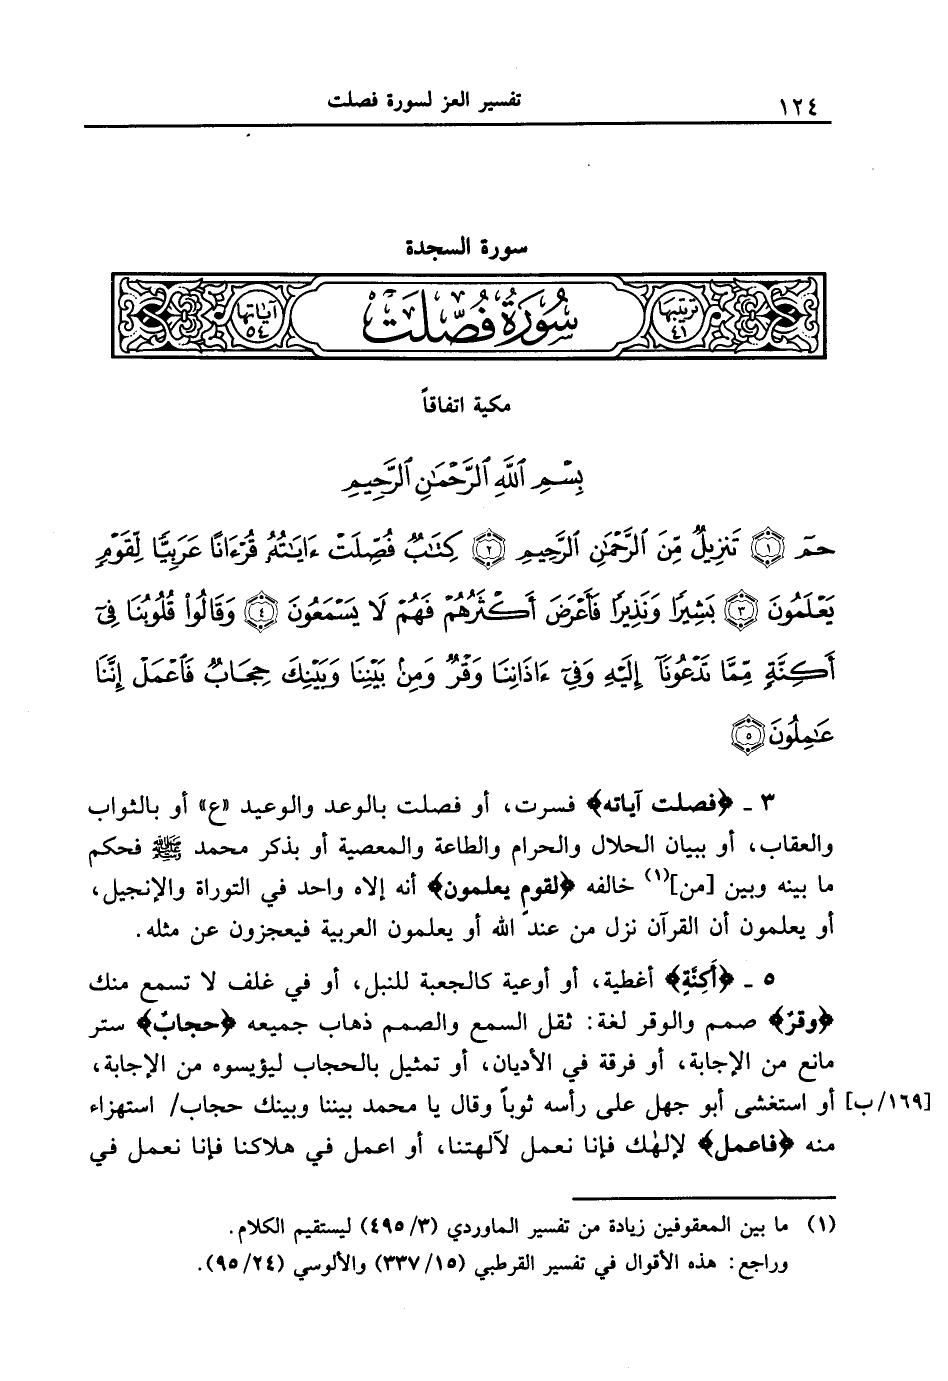 ١٢٤ تفسير العز لسورة فصلت
سورة السجدة
ترتيبها ٤١ سُورَةُ فُصِّلَتْ آياتها ٥٤
مكية اتفاقاً
بِسْمِ ٱللَّهِ ٱلرَّحْمَٰنِ ٱلرَّحِيمِ
حمٓ ﴿١﴾ تَنزِيلٌ مِّنَ ٱلرَّحْمَٰنِ ٱلرَّحِيمِ ﴿٢﴾ كِتَٰبٌ فُصِّلَتْ ءَايَٰتُهُۥ قُرْءَانًا عَرَبِيًّا لِّقَوْمٍ
يَعْلَمُونَ ﴿٣﴾ بَشِيرًا وَنَذِيرًا فَأَعْرَضَ أَكْثَرُهُمْ فَهُمْ لَا يَسْمَعُونَ ﴿٤﴾ وَقَالُوا۟ قُلُوبُنَا فِىٓ
أَكِنَّةٍ مِّمَّا تَدْعُونَآ إِلَيْهِ وَفِىٓ ءَاذَانِنَا وَقْرٌ وَمِنۢ بَيْنِنَا وَبَيْنِكَ حِجَابٌ فَٱعْمَلْ إِنَّنَا
عَٰمِلُونَ ﴿٥﴾
٣ ـ ﴿فصلت آياته﴾ فسرت، أو فصلت بالوعد والوعيد «ع» أو بالثواب
والعقاب، أو ببيان الحلال والحرام والطاعة والمعصية أو بذكر محمد ﷺ فحكم
ما بينه وبين [من](١) خالفه ﴿لقوم يعلمون﴾ أنه إلاه واحد في التوراة والإنجيل،
أو يعلمون أن القرآن نزل من عند الله أو يعلمون العربية فيعجزون عن مثله.
٥ ـ ﴿أَكِنَّةٍ﴾ أغطية، أو أوعية كالجعبة للنبل، أو في غلف لا تسمع منك
﴿وقرٌ﴾ صمم والوقر لغة: ثقل السمع والصمم ذهاب جميعه ﴿حجابٌ﴾ ستر
مانع من الإجابة، أو فرقة في الأديان، أو تمثيل بالحجاب ليؤيسوه من الإجابة،
[١٦٩/ب] أو استغشى أبو جهل على رأسه ثوباً وقال يا محمد بيننا وبينك حجاب/ استهزاء
منه ﴿فاعمل﴾ لإلهٰك فإنا نعمل لآلهتنا، أو اعمل في هلاكنا فإنا نعمل في
(١) ما بين المعقوفين زيادة من تفسير الماوردي (٣/٤٩٥) ليستقيم الكلام.
وراجع: هذه الأقوال في تفسير القرطبي (١٥/٣٣٧) والألوسي (٢٤/٩٥).